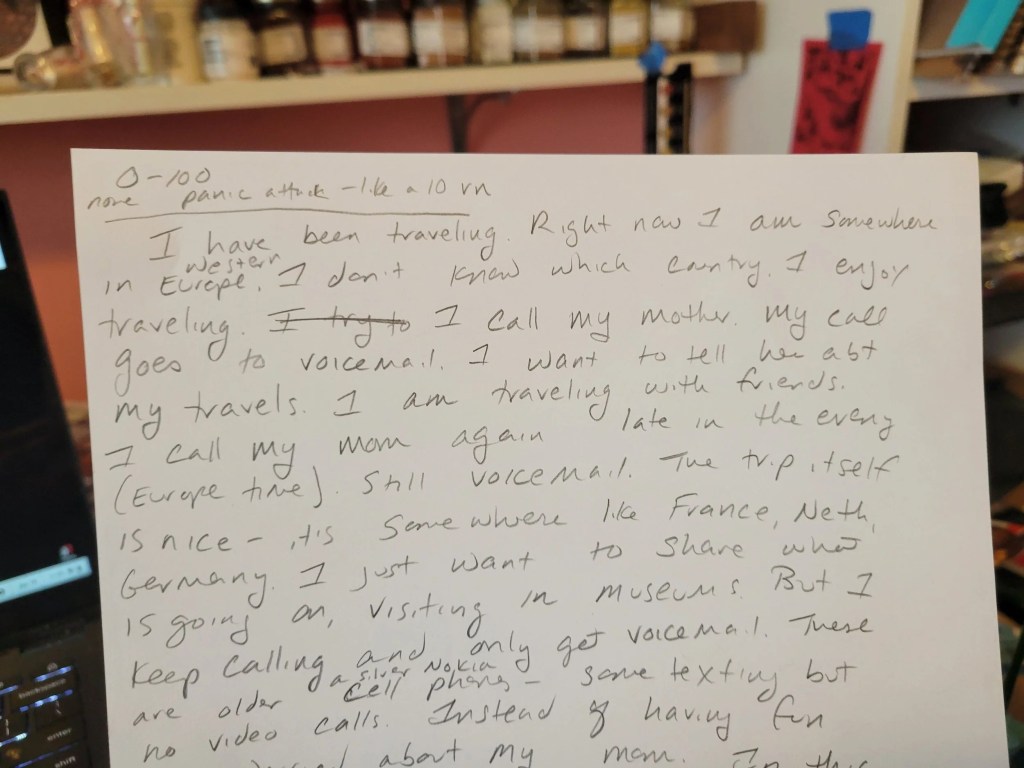 0-100
none panic attack - like a 10 rn
I have been traveling. Right now I am somewhere
western
in Europe. I don't know which country. I enjoy
traveling. I try to I call my mother. My call
goes to voicemail. I want to tell her abt
my travels. I am traveling with friends.
I call my mom again late in the eveng
(Europe time). Still voicemail. The trip itself
is nice - it's somewhere like France, Neth,
Germany. I just want to share what
is going on, visiting in museums. But I
keep calling and only get voicemail. These
a silver Nokia
are older cell phones - some texting but
no video calls. Instead of having fun
about my mom. In this
backspace
enter
shift